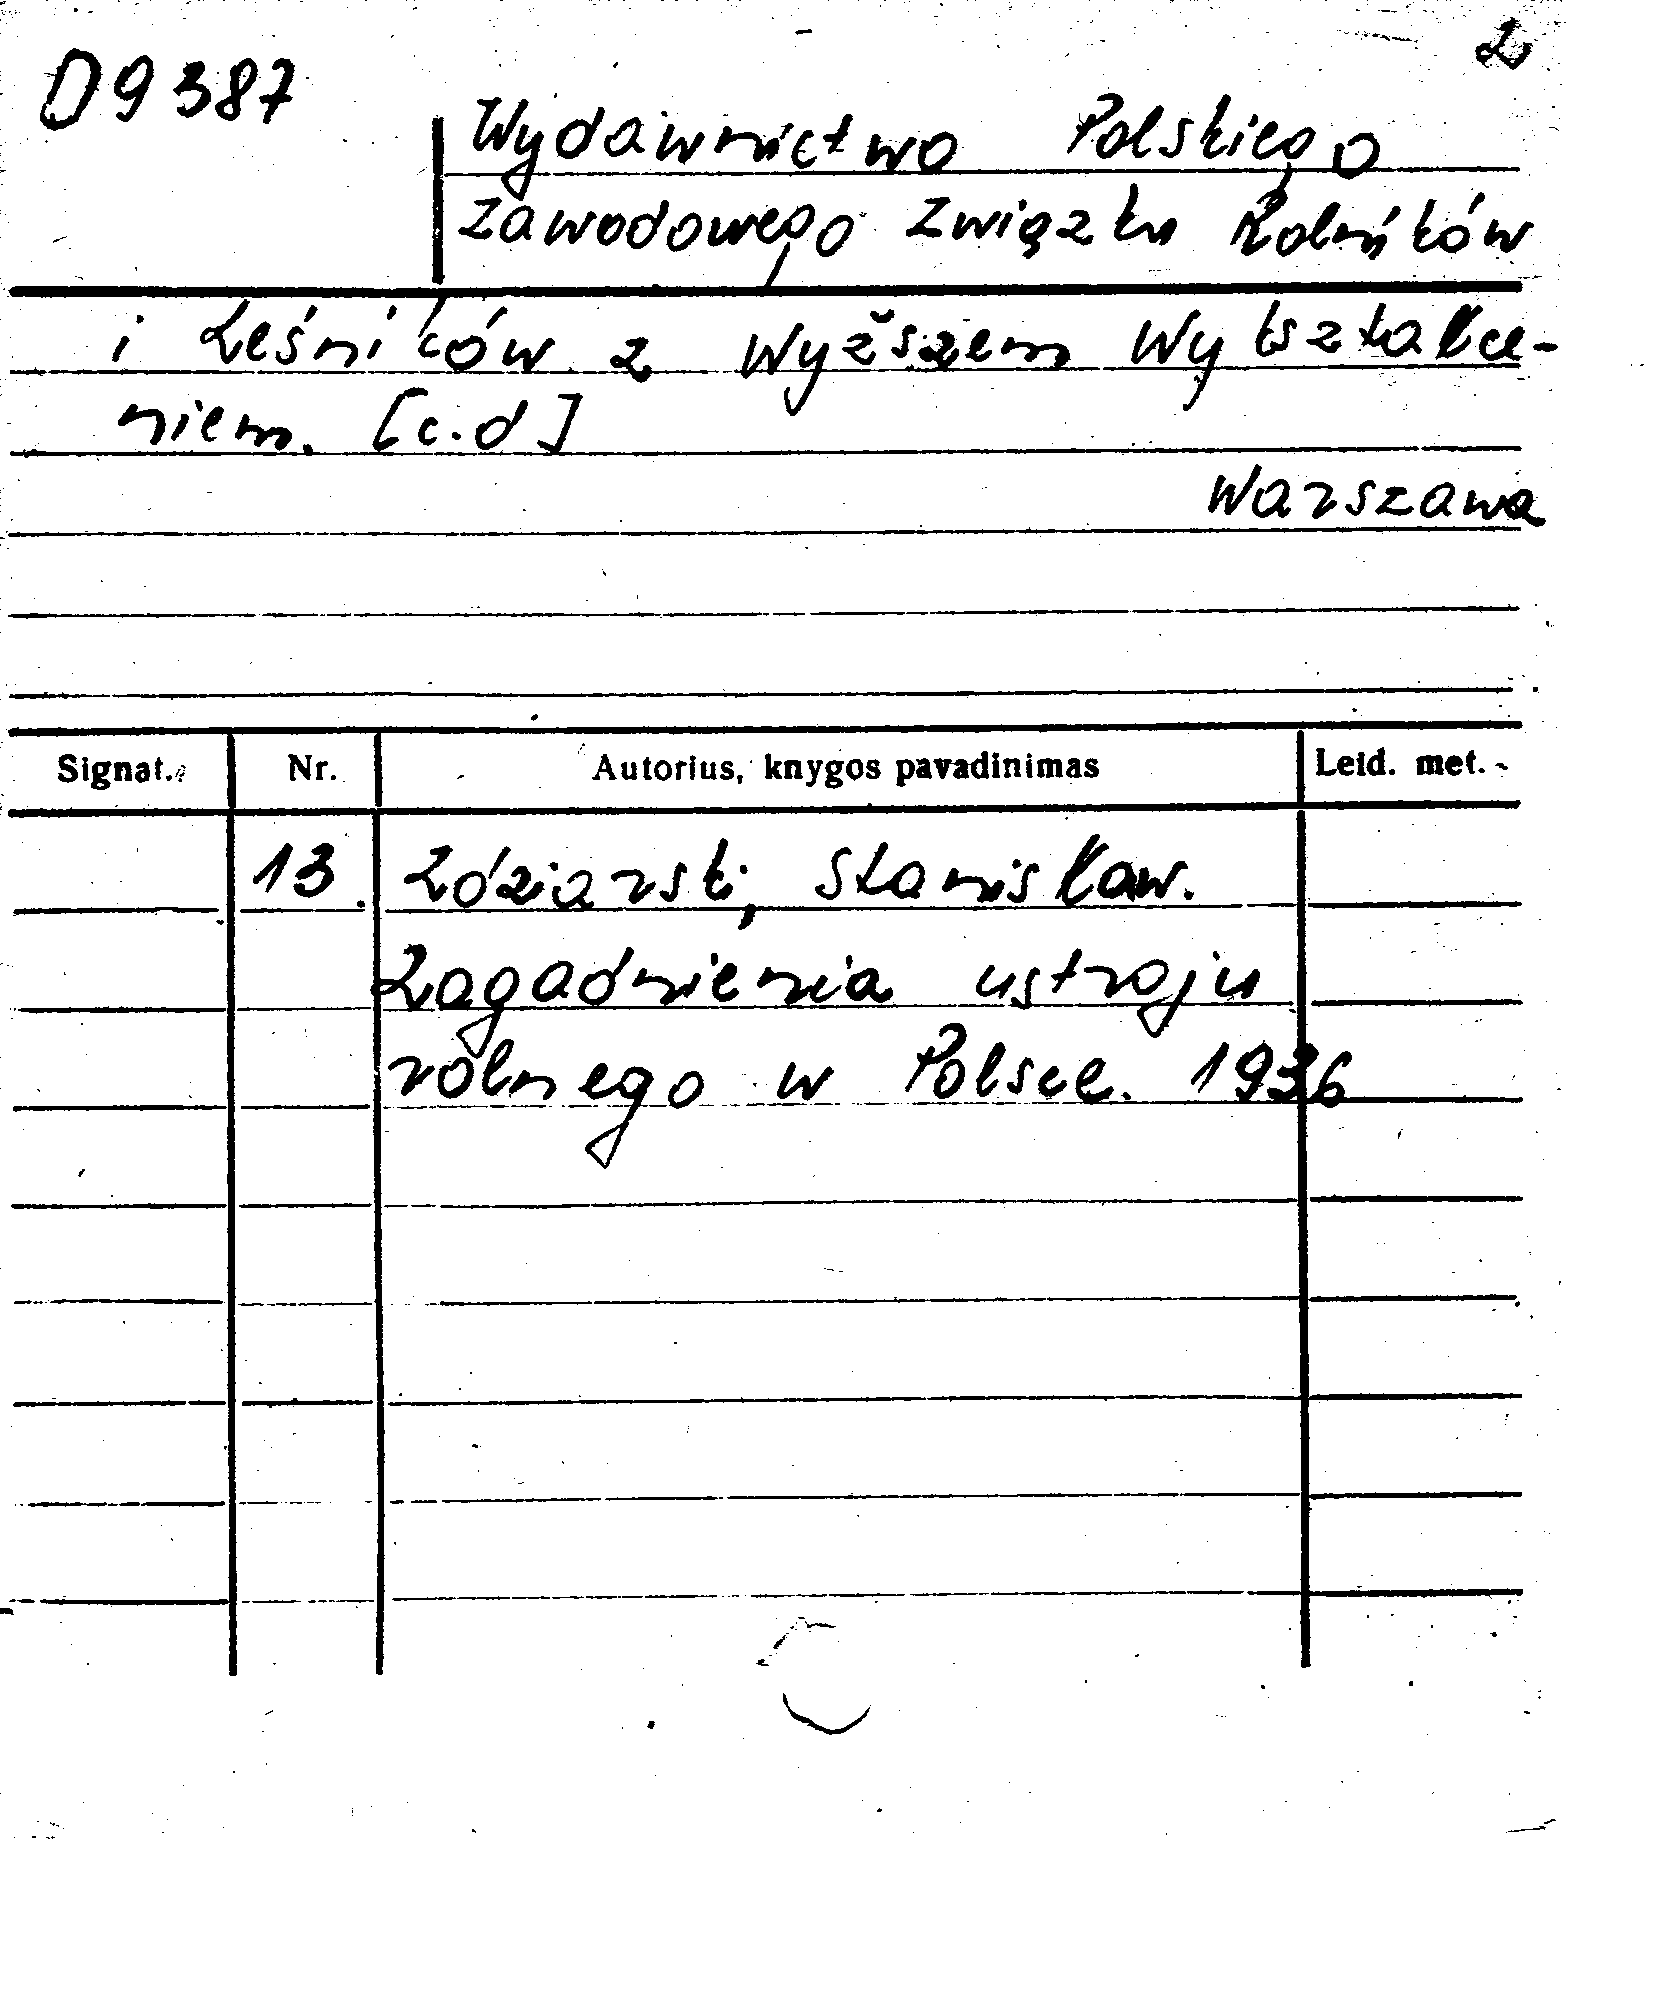 2
D9387
Wydawnictwo Polskiego
Zawodowego Związku Rolników
i Leśników z Wyższem Wykształce-
niem. [c.d]
Warszawa
Signat. Nr. Autorius, knygos pavadinimas Leid. met.
13. Zdziarski, Stanisław.
Zagadnienia ustroju
rolnego w Polsce. 1936